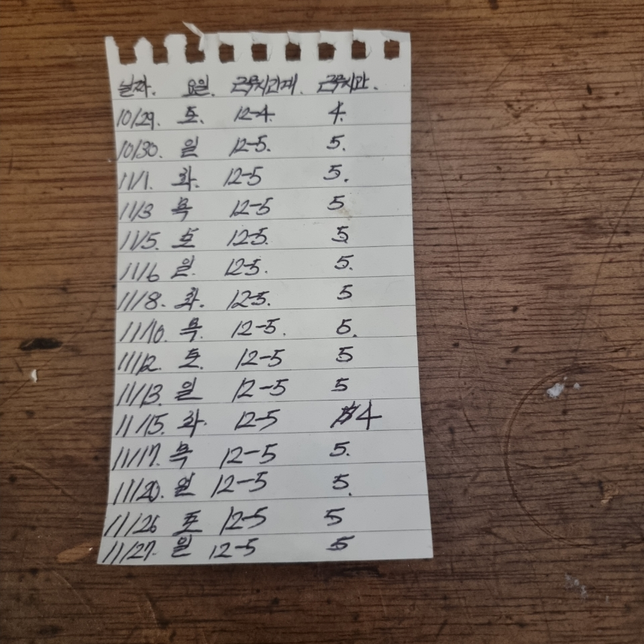 날짜. 요일. 근무시간제. 근무시간.
10/29. 토. 12-4. 4.
10/30. 일 12-5. 5.
11/1. 화. 12-5 5.
11/3 목 12-5 5
11/5. 토 12-5. 5
11/6 일. 12-5. 5.
11/8. 화. 12-5. 5
11/10. 목. 12-5. 5.
11/12. 토. 12-5 5
11/13. 일 12-5 5
11/15. 화. 12-5 4
11/17. 목 12-5 5.
11/20. 일 12-5 5.
11/26 토 12-5 5
11/27. 일 12-5 5